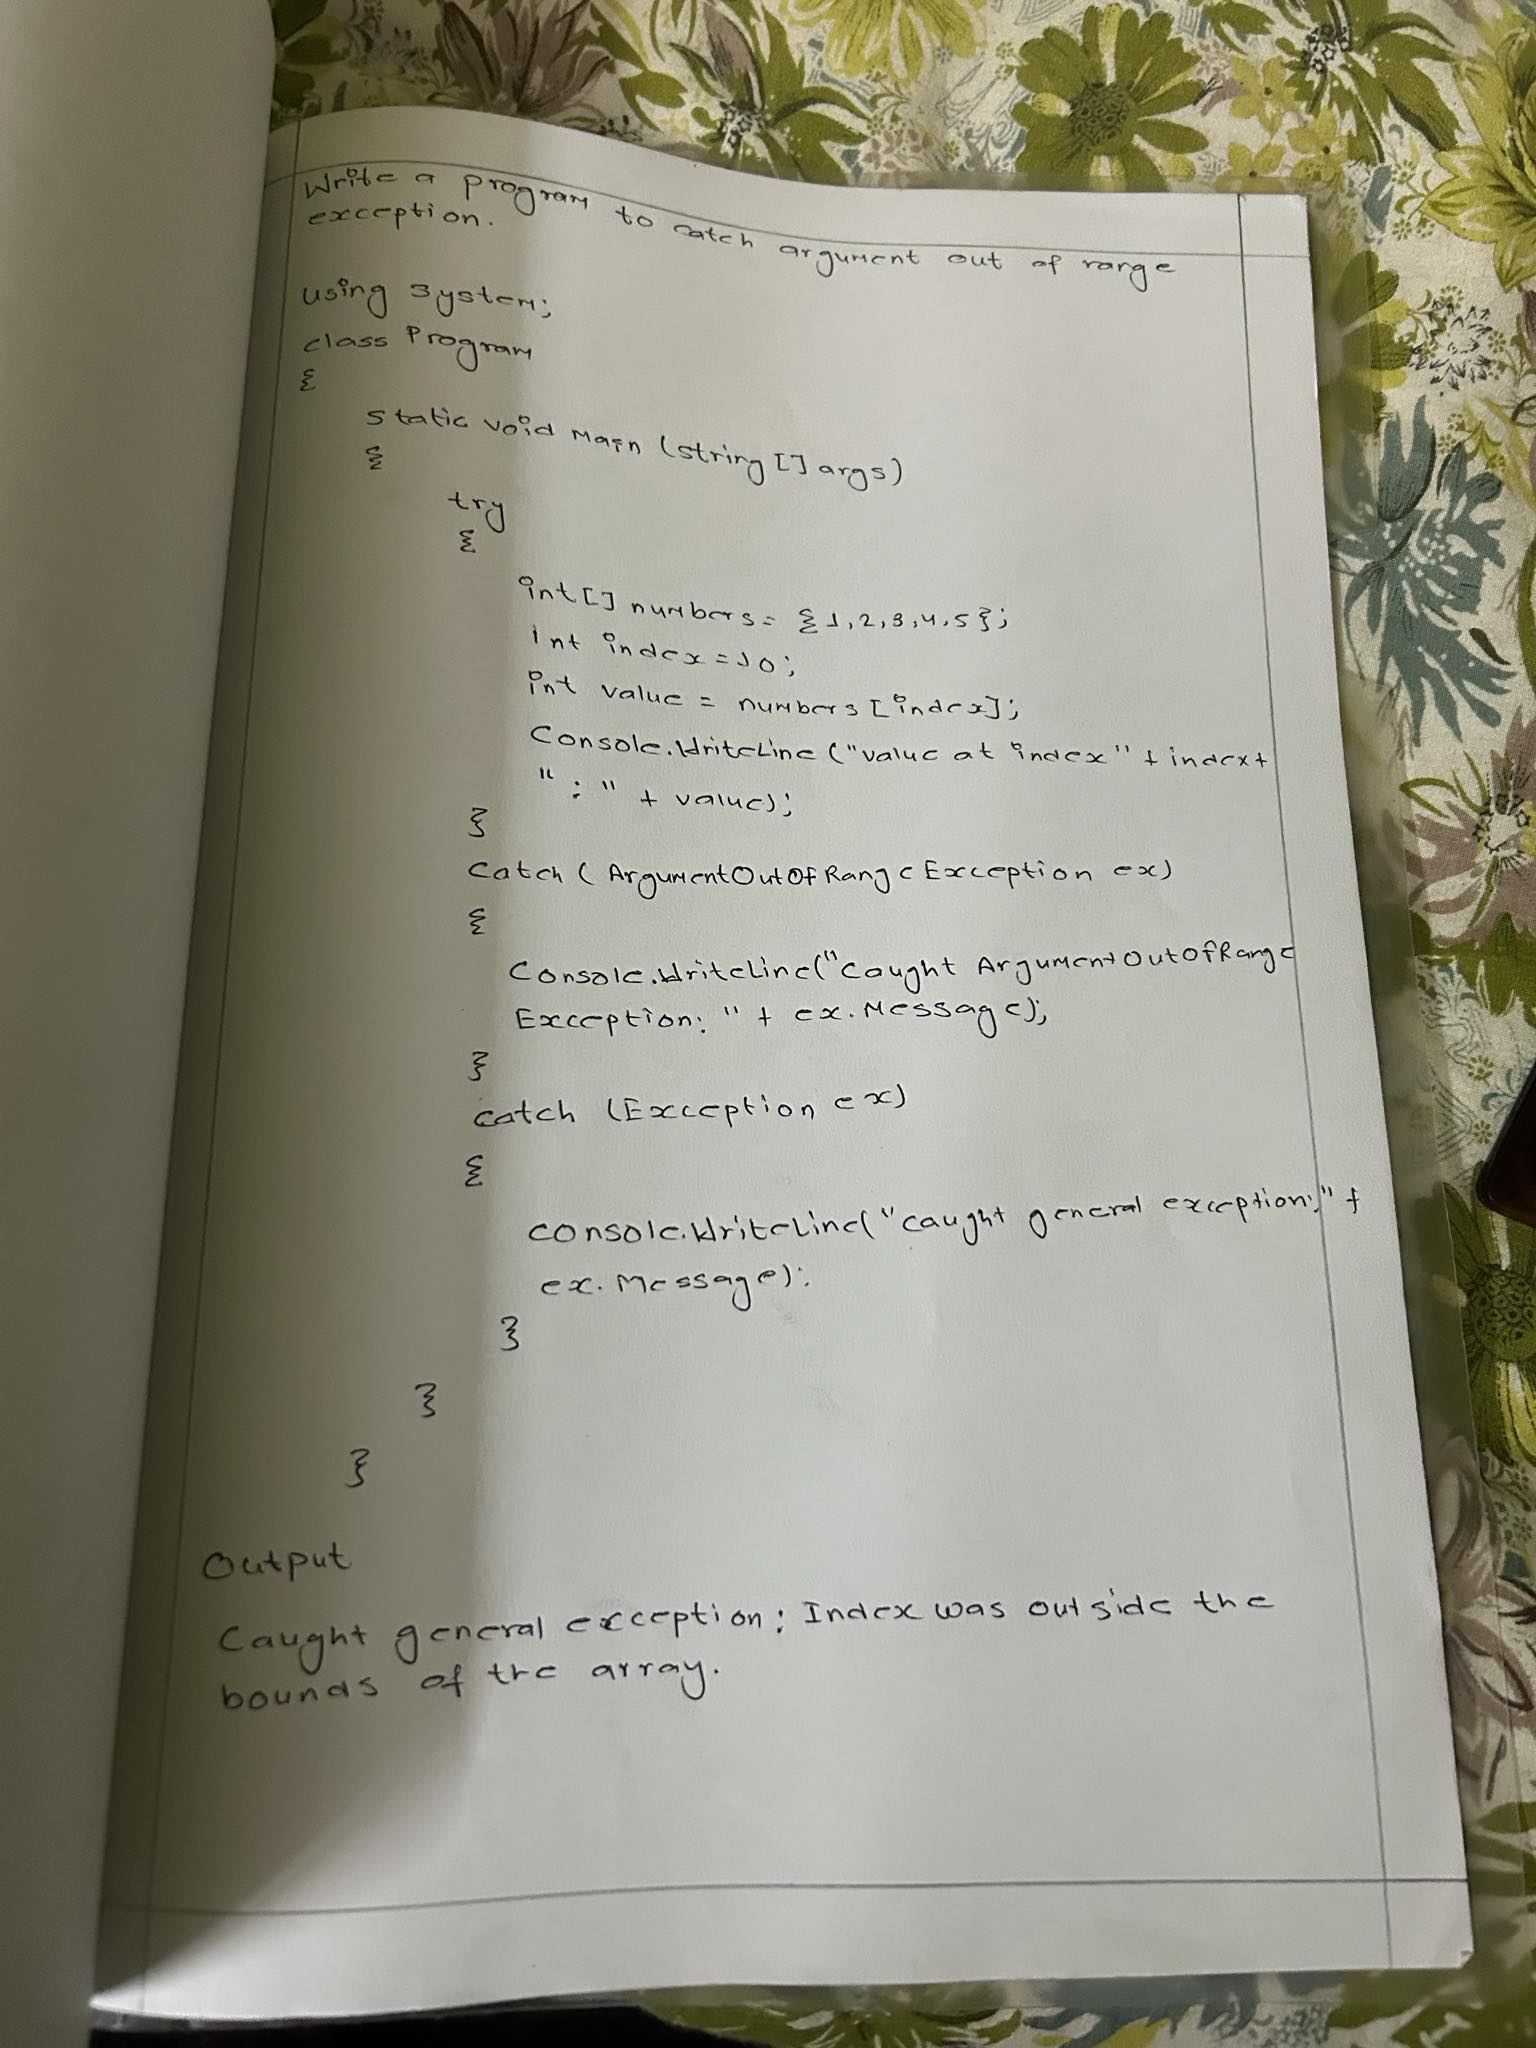 Write a program to catch argument out of range
exception.
using System;
class Program
{
static void Main (string [] args)
{
try
{
int[] numbers = {1,2,3,4,5};
int index = 10;
int value = numbers [index];
Console.WriteLine ("value at index" + index +
" : " + value);
}
catch ( ArgumentOutOfRangeException ex)
{
Console.WriteLine("Caught ArgumentOutOfRange
Exception: " + ex.Message);
}
catch (Exception ex)
{
console.WriteLine("caught general exception:" +
ex.Message);
}
}
}
Output
Caught general exception: Index was outside the
bounds of the array.